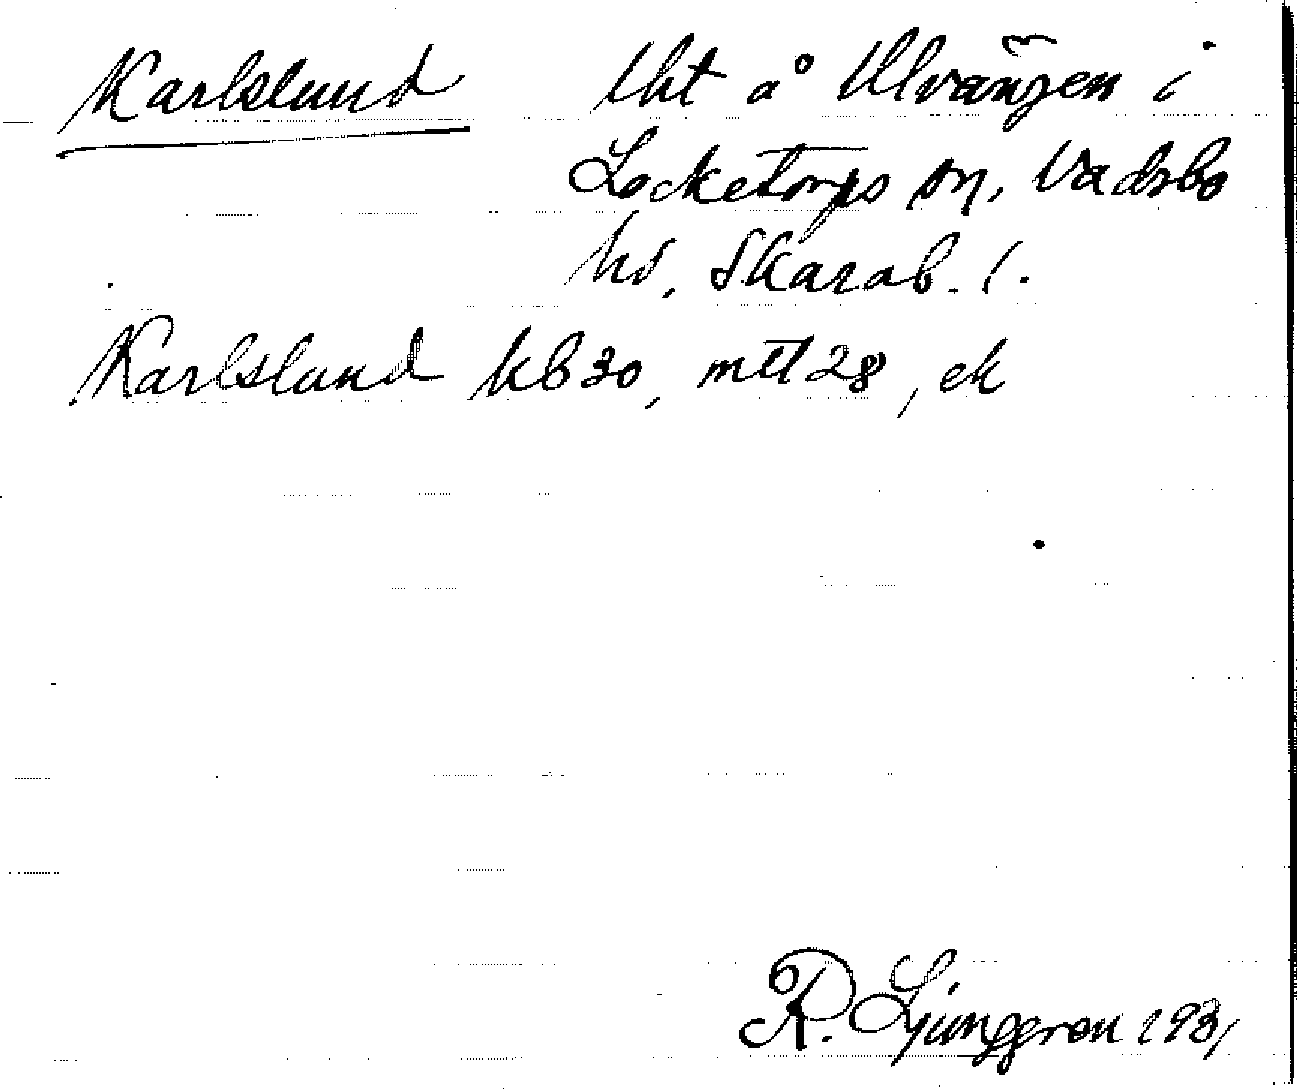 Karlslund lht å Ulvängen i
Locketorps sn, Vadsbo
hd, Skarab. l.
Karlslund kb 30, mtl 28, ek
R. Ljunggren 1931